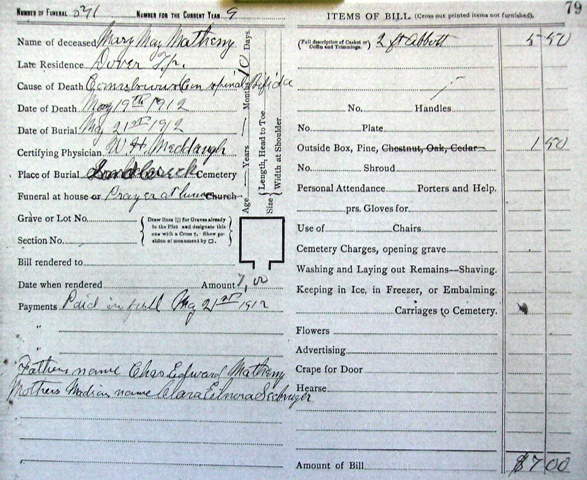 79
NUMBER OF FUNERAL 891 NUMBER FOR THE CURRENT YEAR 9
Name of deceased Mary May Matheny
Late Residence Dover Tp.
Cause of Death spinal Bifida
Date of Death May 19th 1912
Date of Burial May 21st 1912
Certifying Physician W. H.
Place of Burial Cemetery
Funeral at house or Prayer at home Church
Grave or Lot No.
Section No.
Draw lines for Graves already in the Plot and designate this one with a Cross †. Show position of monument by □.
Bill rendered to
Date when rendered Amount 7.00
Payments Paid in full 21st 1912
Fathers name Chas Edward Matheny
Mothers Madian name Clara Elnora
Age Years Months 10 Days.
Size Length, Head to Toe
Width at Shoulder
ITEMS OF BILL (Cross out printed items not furnished).
(Full description of Casket or Coffin and Trimmings. 2 ft Abbott 5 50
No. Handles
No. Plate
Outside Box, Pine, Chestnut, Oak, Cedar 1 50
No. Shroud
Personal Attendance Porters and Help.
prs. Gloves for
Use of Chairs
Cemetery Charges, opening grave
Washing and Laying out Remains—Shaving.
Keeping in Ice, in Freezer, or Embalming.
Carriages to Cemetery.
Flowers
Advertising
Crape for Door
Hearse
Amount of Bill $7 00